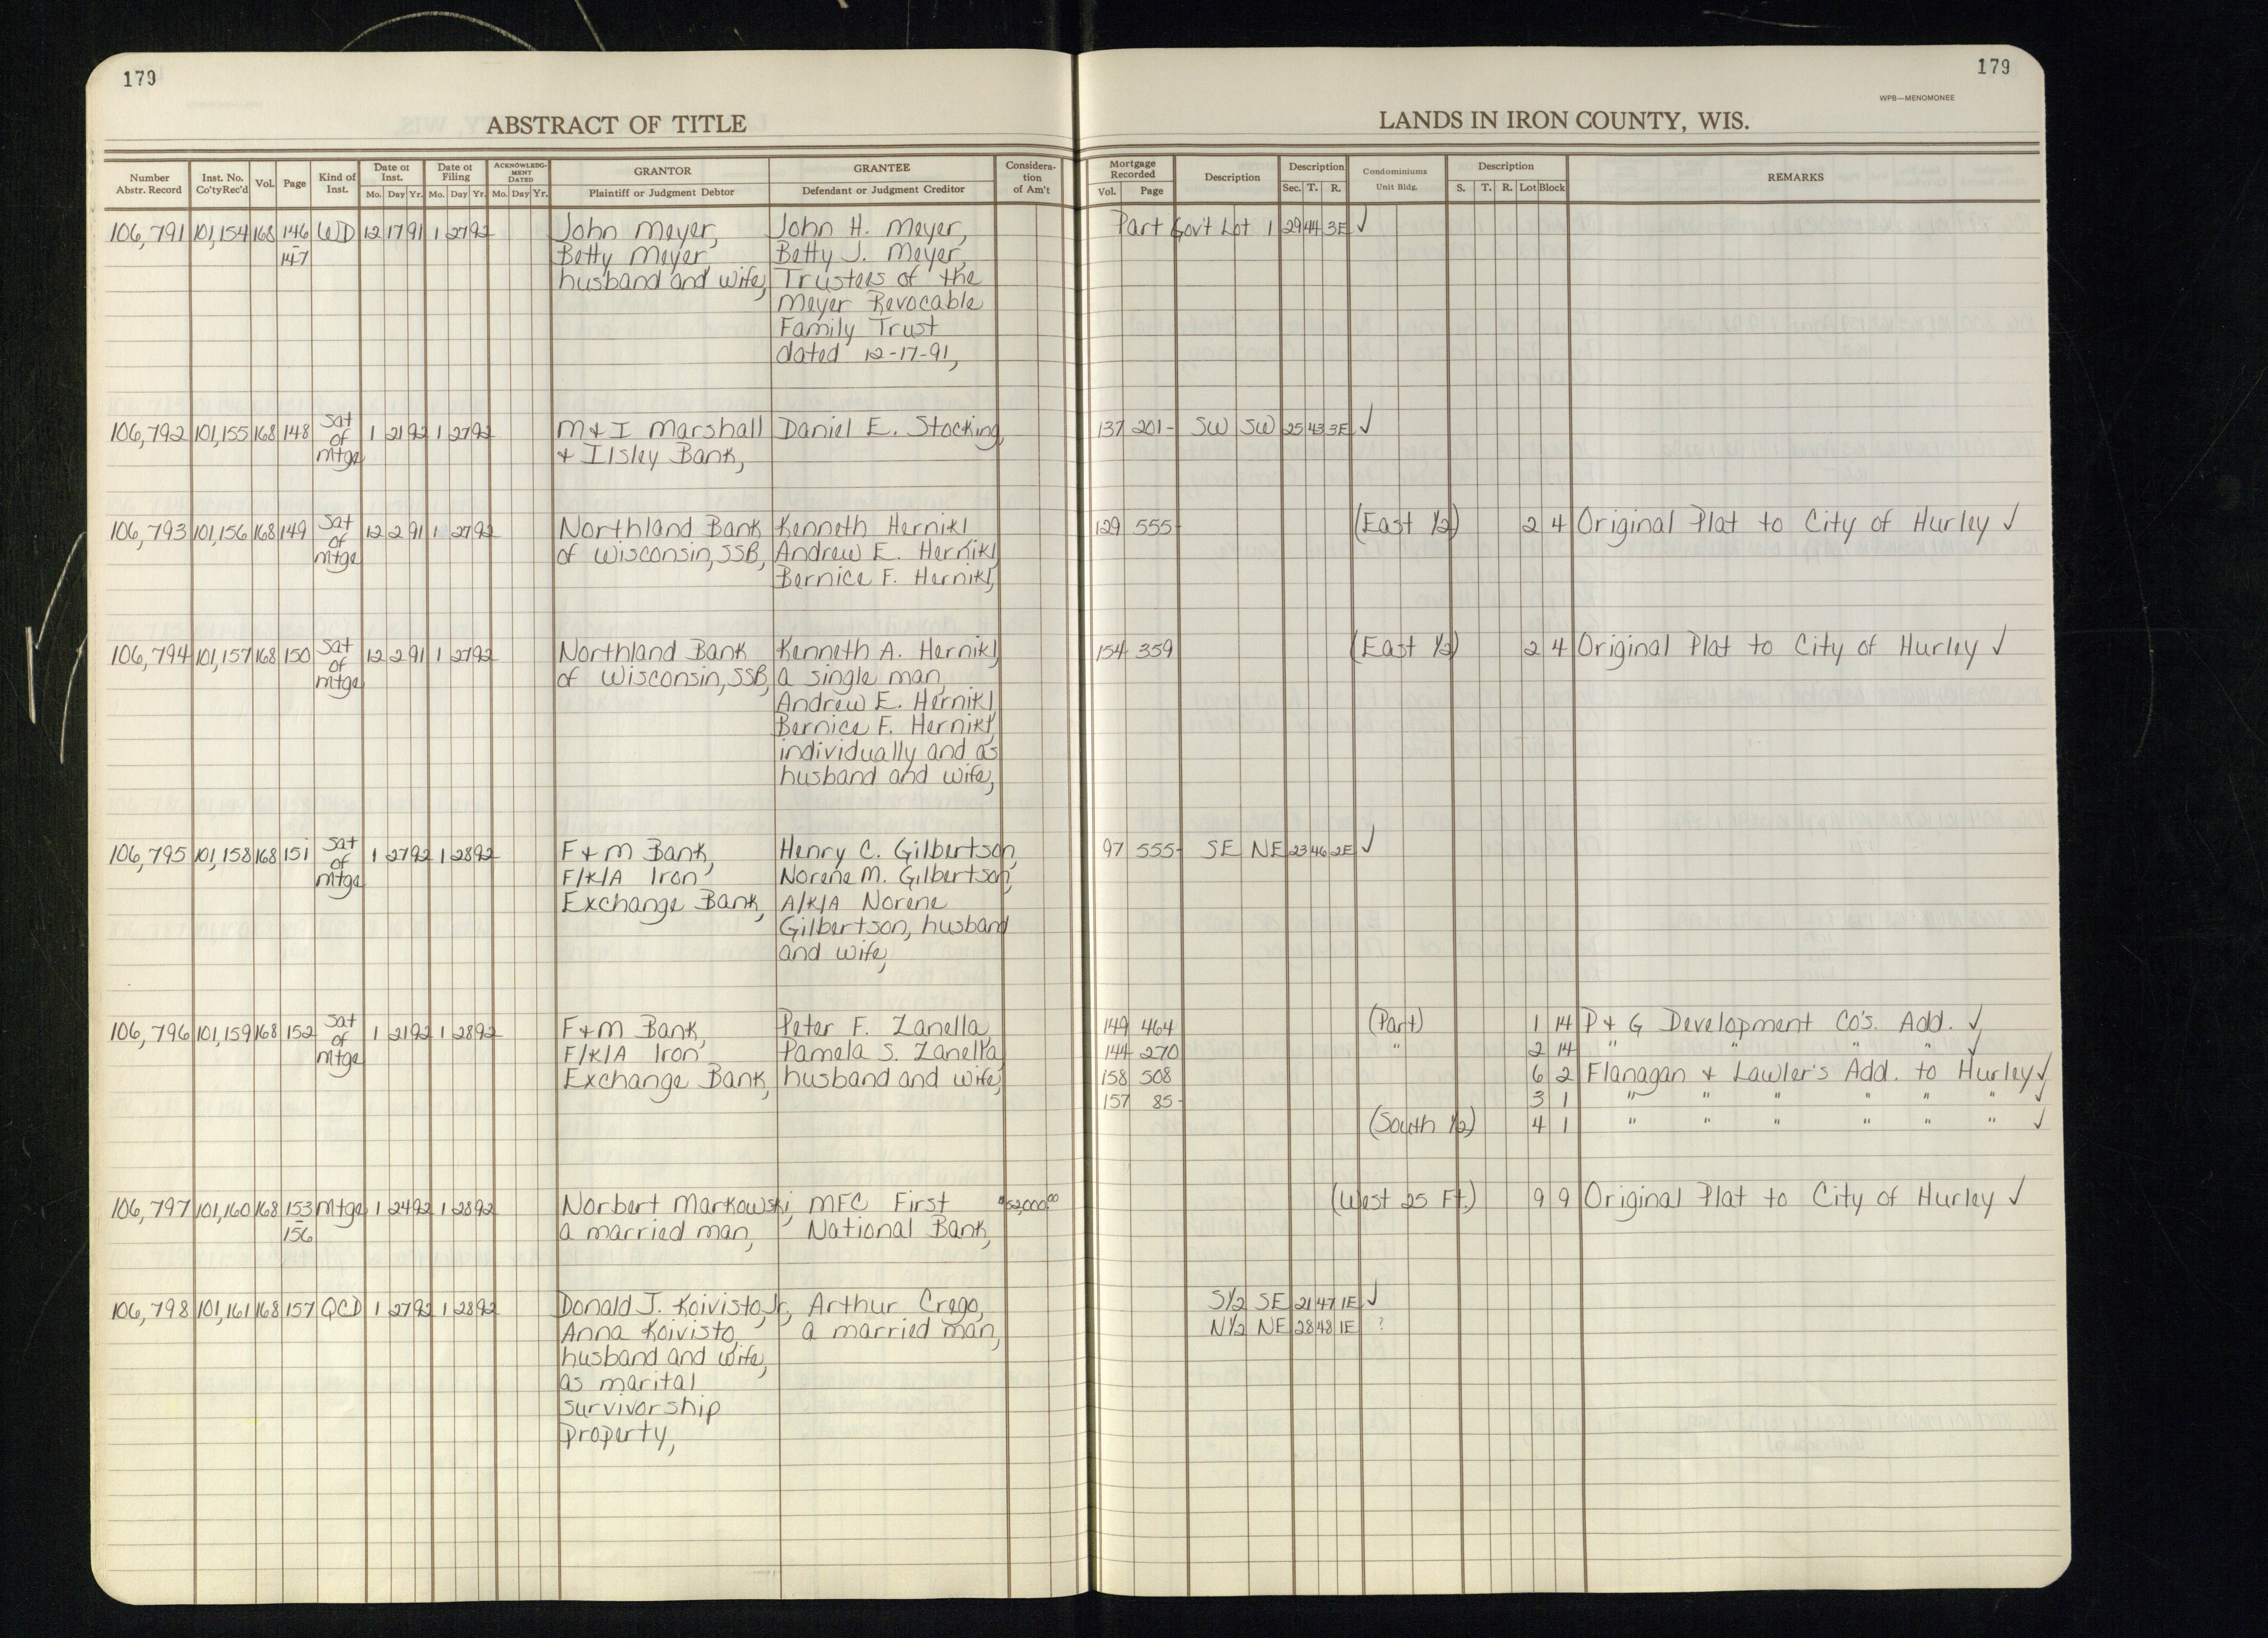 179
179
WPB—MENOMONEE
ABSTRACT OF TITLE
LANDS IN IRON COUNTY, WIS.
Number Abstr. Record Inst. No. Co'ty Rec'd Vol. Page Kind of Inst. Date of Inst. Mo. Day Yr. Date of Filing Mo. Day Yr. ACKNOWLEDGMENT DATED Mo. Day Yr. GRANTOR Plaintiff or Judgment Debtor GRANTEE Defendant or Judgment Creditor Consideration of Am't Mortgage Recorded Vol. Page Description Description Sec. T. R. Condominiums Unit Bldg. Description S. T. R. Lot Block REMARKS
106,791 101,154 168 146 WD 12 17 91 1 27 92 John Meyer, John H. Meyer, Part Gov't Lot 1 29 44 3E ✓
- 147 Betty Meyer, Betty J. Meyer,
husband and wife, Trustees of the
Meyer Revocable
Family Trust
dated 12-17-91,
106,792 101,155 168 148 Sat 1 21 92 1 27 92 M & I Marshall Daniel E. Stocking, 137 201- SW SW 25 43 3E ✓
of Mtge & Ilsley Bank,
106,793 101,156 168 149 Sat 12 2 91 1 27 92 Northland Bank Kenneth Hernikl 129 555- (East 1/2) 2 4 Original Plat to City of Hurley ✓
of Mtge of Wisconsin, SSB, Andrew E. Hernikl,
Bernice F. Hernikl,
106,794 101,157 168 150 Sat 12 2 91 1 27 92 Northland Bank Kenneth A. Hernikl, 154 359 (East 1/2) 2 4 Original Plat to City of Hurley ✓
of Mtge of Wisconsin, SSB, a single man,
Andrew E. Hernikl,
Bernice F. Hernikl,
individually and as
husband and wife,
106,795 101,158 168 151 Sat 1 27 92 1 28 92 F & M Bank, Henry C. Gilbertson, 97 555- SE NE 23 46 2E ✓
of Mtge F/K/A Iron Norene M. Gilbertson,
Exchange Bank, A/K/A Norene
Gilbertson, husband
and wife,
106,796 101,159 168 152 Sat 1 21 92 1 28 92 F & M Bank, Peter F. Zanella, 149 464 (Part) 1 14 P & G Development Co's. Add. ✓
of F/K/A Iron Pamela S. Zanella, 144 270 " 2 14 " " " " ✓
Mtge Exchange Bank, husband and wife, 158 508 6 2 Flanagan & Lawler's Add. to Hurley ✓
157 85- 3 1 " " " " " " ✓
(South 1/2) 4 1 " " " " " " ✓
106,797 101,160 168 153 Mtge 1 24 92 1 28 92 Norbert Markowski, MFC First $52,000.00 (West 25 Ft.) 9 9 Original Plat to City of Hurley ✓
- 156 a married man, National Bank,
106,798 101,161 168 157 QCD 1 27 92 1 28 92 Donald J. Koivisto, Jr., Arthur Crego, S1/2 SE 21 47 1E ✓
Anna Koivisto, a married man, N1/2 NE 28 48 1E ?
husband and wife,
as marital
survivorship
property,